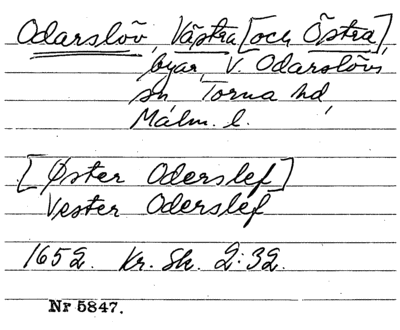 Odarslöv, Västra [och Östra]
byar, V. Odarslövs
sn Torna hd,
Malm. l.
[Øster Oderslef]
Vester Oderslef
1652. Kr. Sk. 2:32.
Nr 5847.